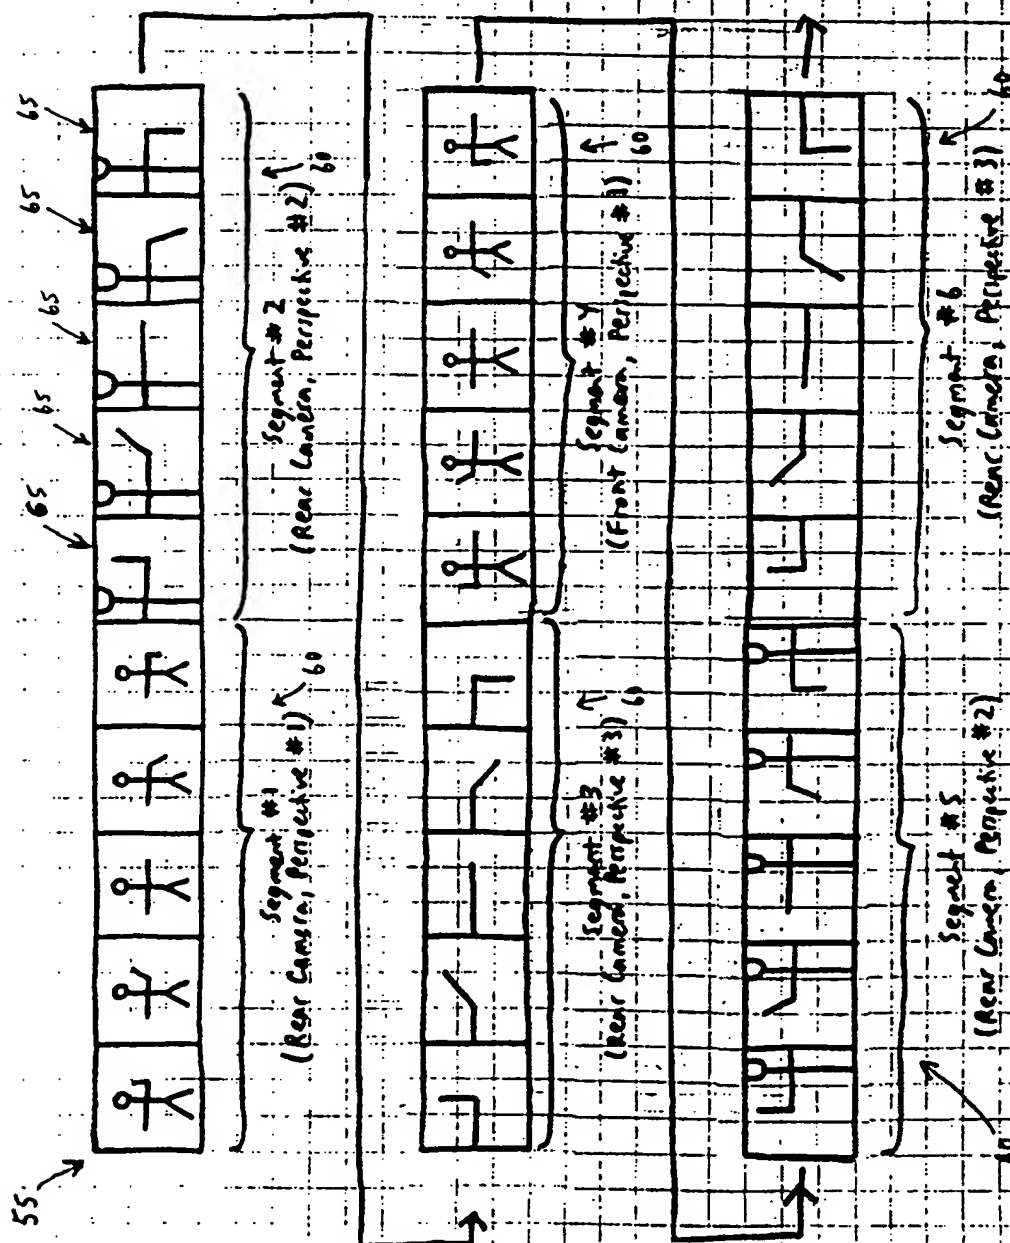 55
65 65 65 65 65
Segment #1
(Rear Camera, Perspective #1)
60
Segment #2
(Rear Camera, Perspective #2)
60
Segment #3
(Rear Camera, Perspective #3)
60
Segment #4
(Front Camera, Perspective #1)
60
Segment #5
(Rear Camera, Perspective #2)
60
Segment #6
(Rear Camera, Perspective #3)
60